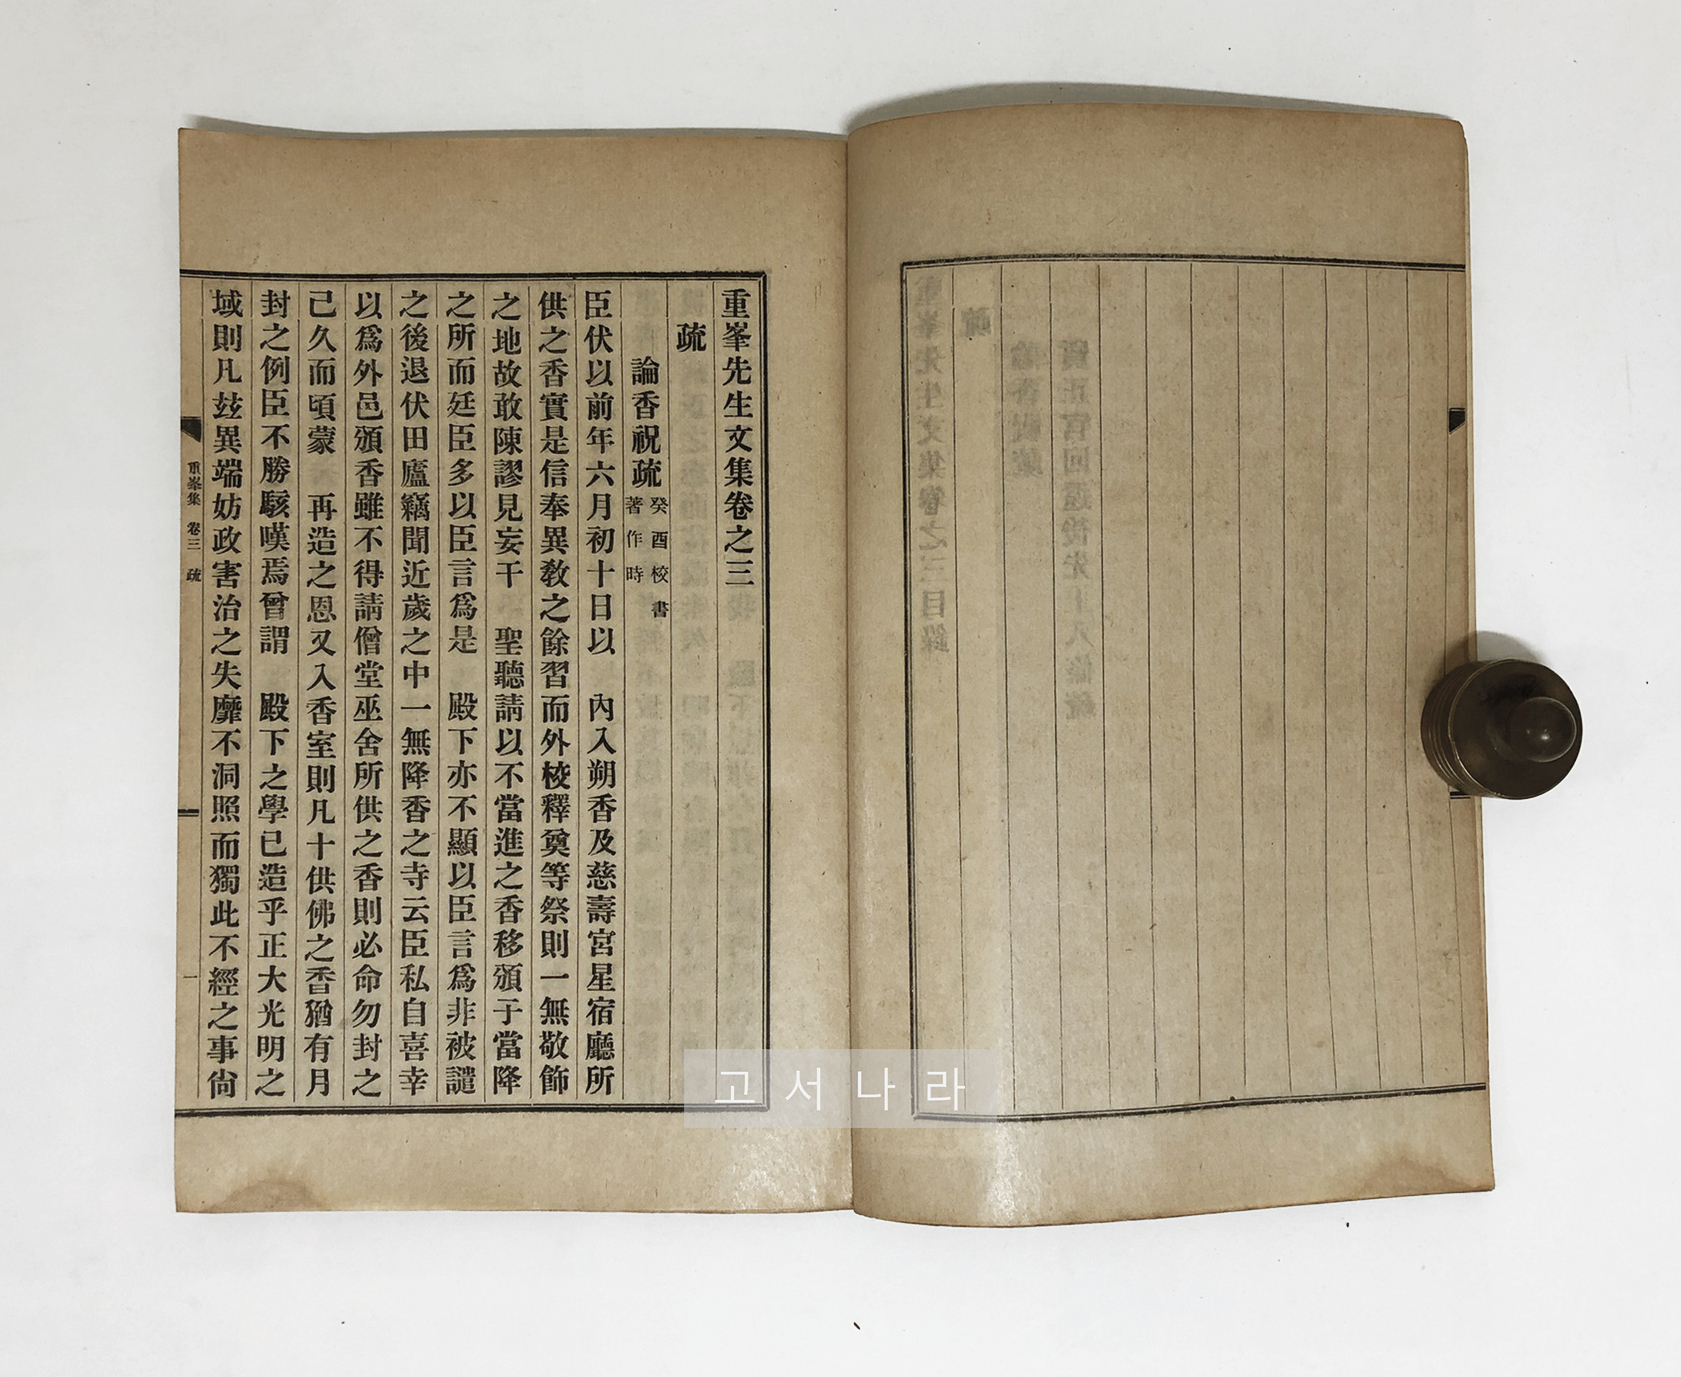 重峯先生文集卷之三
疏
論香祝疏 癸酉校書著作時
臣伏以前年六月初十日以 內入朔香及慈壽宮星宿廳所
供之香實是信奉異敎之餘習而外校釋奠等祭則一無敬飾
之地故敢陳謬見妄干 聖聽請以不當進之香移頒于當降
之所而廷臣多以臣言爲是 殿下亦不顯以臣言爲非被譴
之後退伏田廬竊聞近歲之中一無降香之寺云臣私自喜幸
以爲外邑頒香雖不得請僧堂巫舍所供之香則必命勿封之
己久而頃蒙 再造之恩又入香室則凡十供佛之香猶有月
封之例臣不勝駭嘆焉曾謂 殿下之學已造乎正大光明之
域則凡玆異端妨政害治之失靡不洞照而獨此不經之事尙
重峯集 卷三 疏 一
고서나라